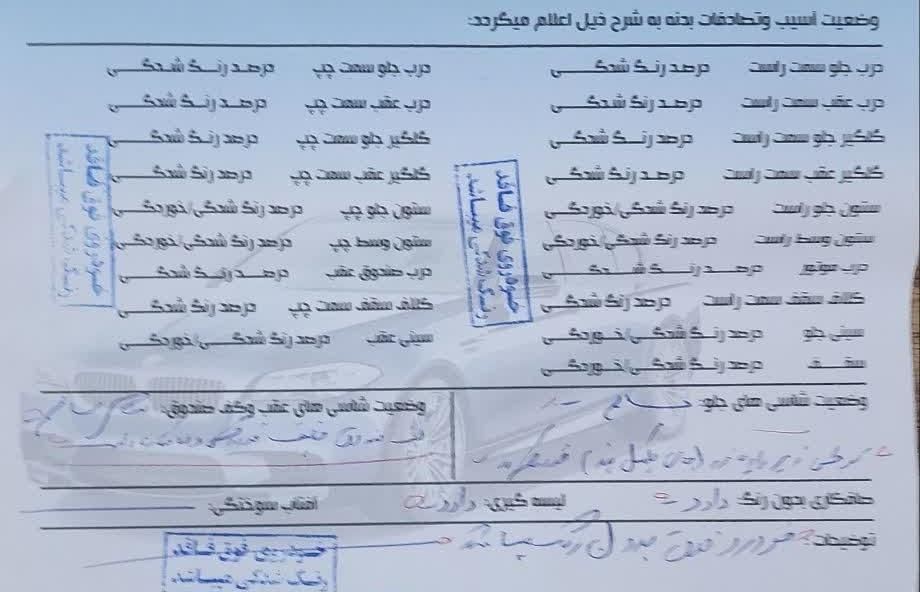 وضعیت آسیب وتصادفات بدنه به شرح ذیل اعلام میگردد:
درب جلو سمت راست درصد رنگ شدگی درب جلو سمت چپ درصد رنگ شدگی
درب عقب سمت راست درصد رنگ شدگی درب عقب سمت چپ درصد رنگ شدگی
گلگیر جلو سمت راست درصد رنگ شدگی گلگیر جلو سمت چپ درصد رنگ شدگی
گلگیر عقب سمت راست درصد رنگ شدگی گلگیر عقب سمت چپ درصد رنگ شدگی
ستون جلو راست درصد رنگ شدگی/خوردگی ستون جلو چپ درصد رنگ شدگی/خوردگی
ستون وسط راست درصد رنگ شدگی/خوردگی ستون وسط چپ درصد رنگ شدگی/خوردگی
درب موتور درصد رنگ شدگی درب صندوق عقب درصد رنگ شدگی
کلاف سقف سمت راست درصد رنگ شدگی کلاف سقف سمت چپ درصد رنگ شدگی
سینی جلو درصد رنگ شدگی/خوردگی سینی عقب درصد رنگ شدگی/خوردگی
سقف درصد رنگ شدگی/خوردگی
خودروی فوق فاقد
رنگ شدگی میباشد
خودروی فوق فاقد
رنگ شدگی میباشد
وضعیت شاسی های جلو: سالم وضعیت شاسی های عقب وکف صندوق:
صافکاری بدون رنگ: دارد لیسه گیری: دارد آفتاب سوختگی:
توضیحات: خودرو فوق بدون رنگ میباشد
خودروی فوق فاقد
رنگ شدگی میباشد